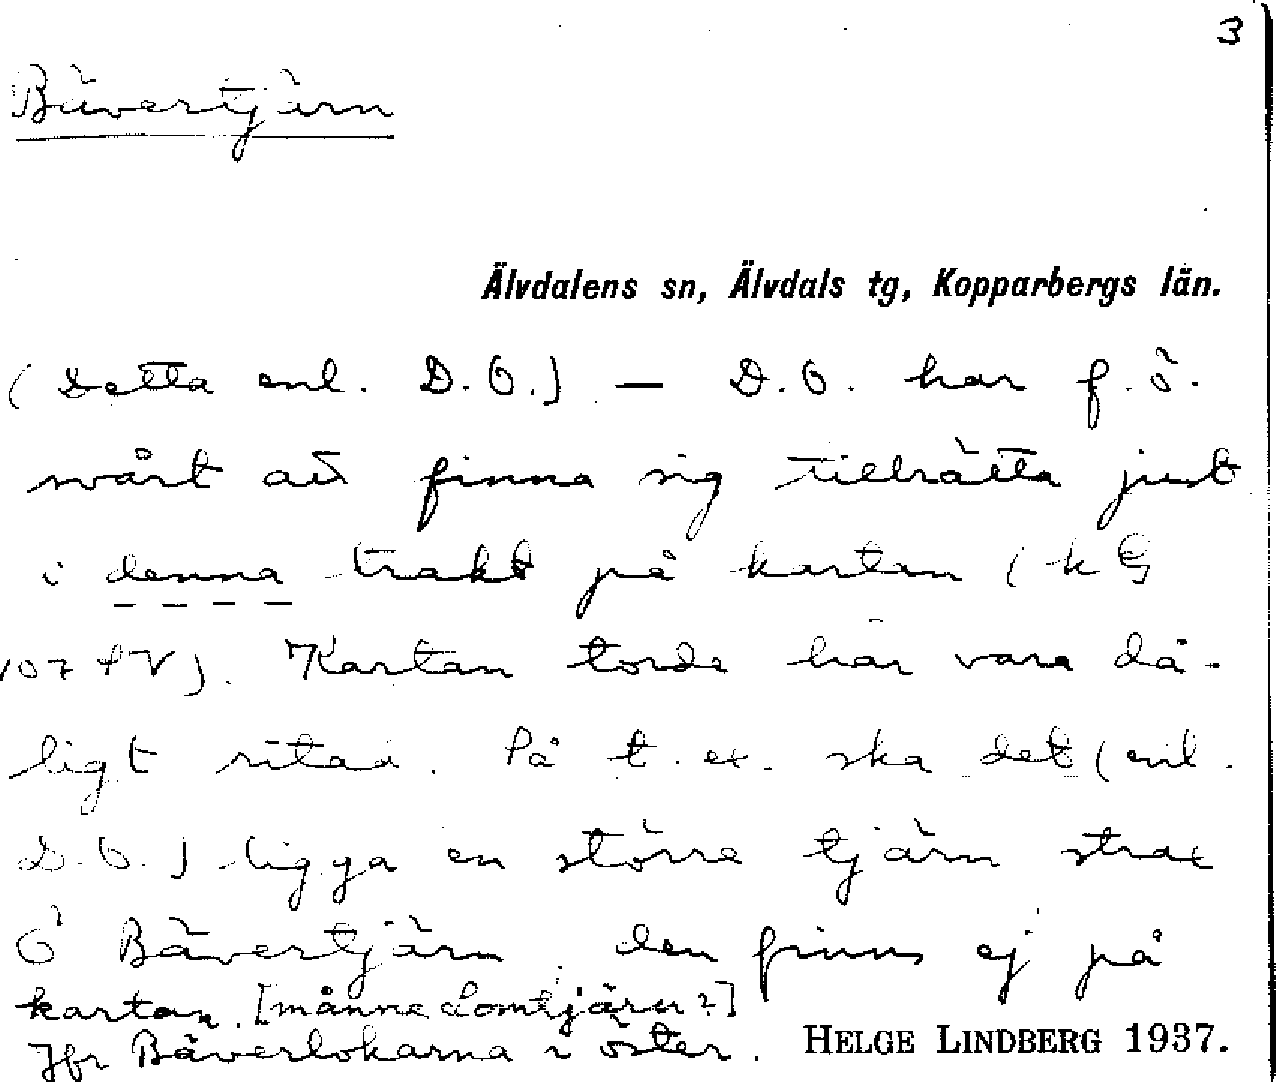 3
Bävertjärn
Älvdalens sn, Älvdals tg, Kopparbergs län.
(Detta enl. D.O.) — D.O. har f.ö.
svårt att finna sig tillrätta just
i denna trakt på kartan (kG
107 SV). Kartan torde här vara då-
ligt ritad. På t. ex. ska det (enl.
D.O.) ligga en större tjärn strax
Ö Bävertjärn, den finns ej på
kartan. [månne Lomtjärn?]
Jfr Bäverlokarna i öster.
HELGE LINDBERG 1937.